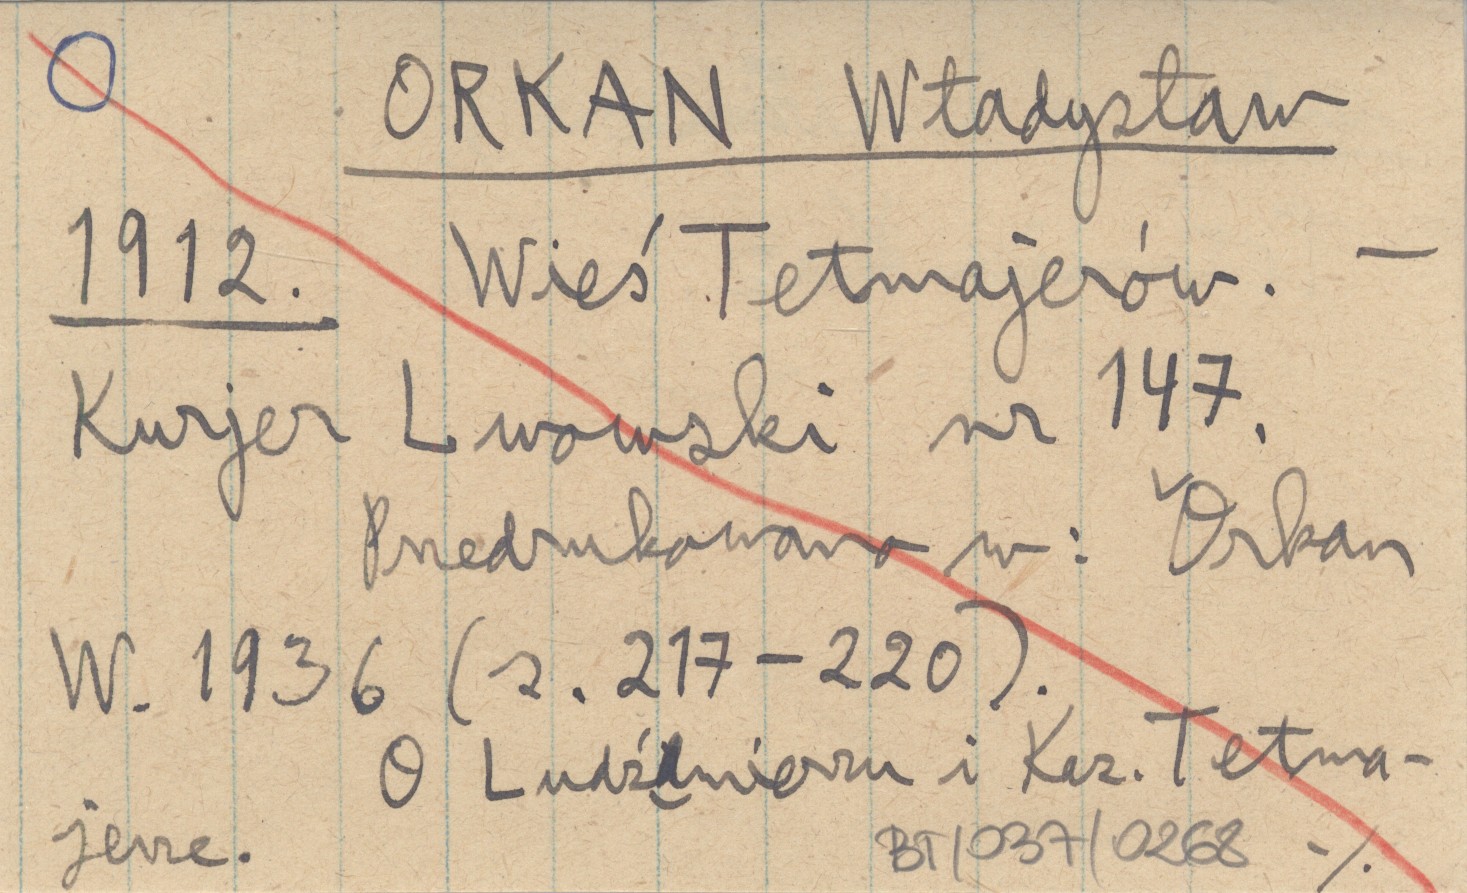 ORKAN Władysław
1912. Wieś Tetmajerów. —
Kurjer Lwowski nr 147.
Przedrukowano w: Orkan
W. 1936 (s. 217-220).
O Ludźmierzu i Kaz. Tetma-
jerze.
BT/037/0268 -/.